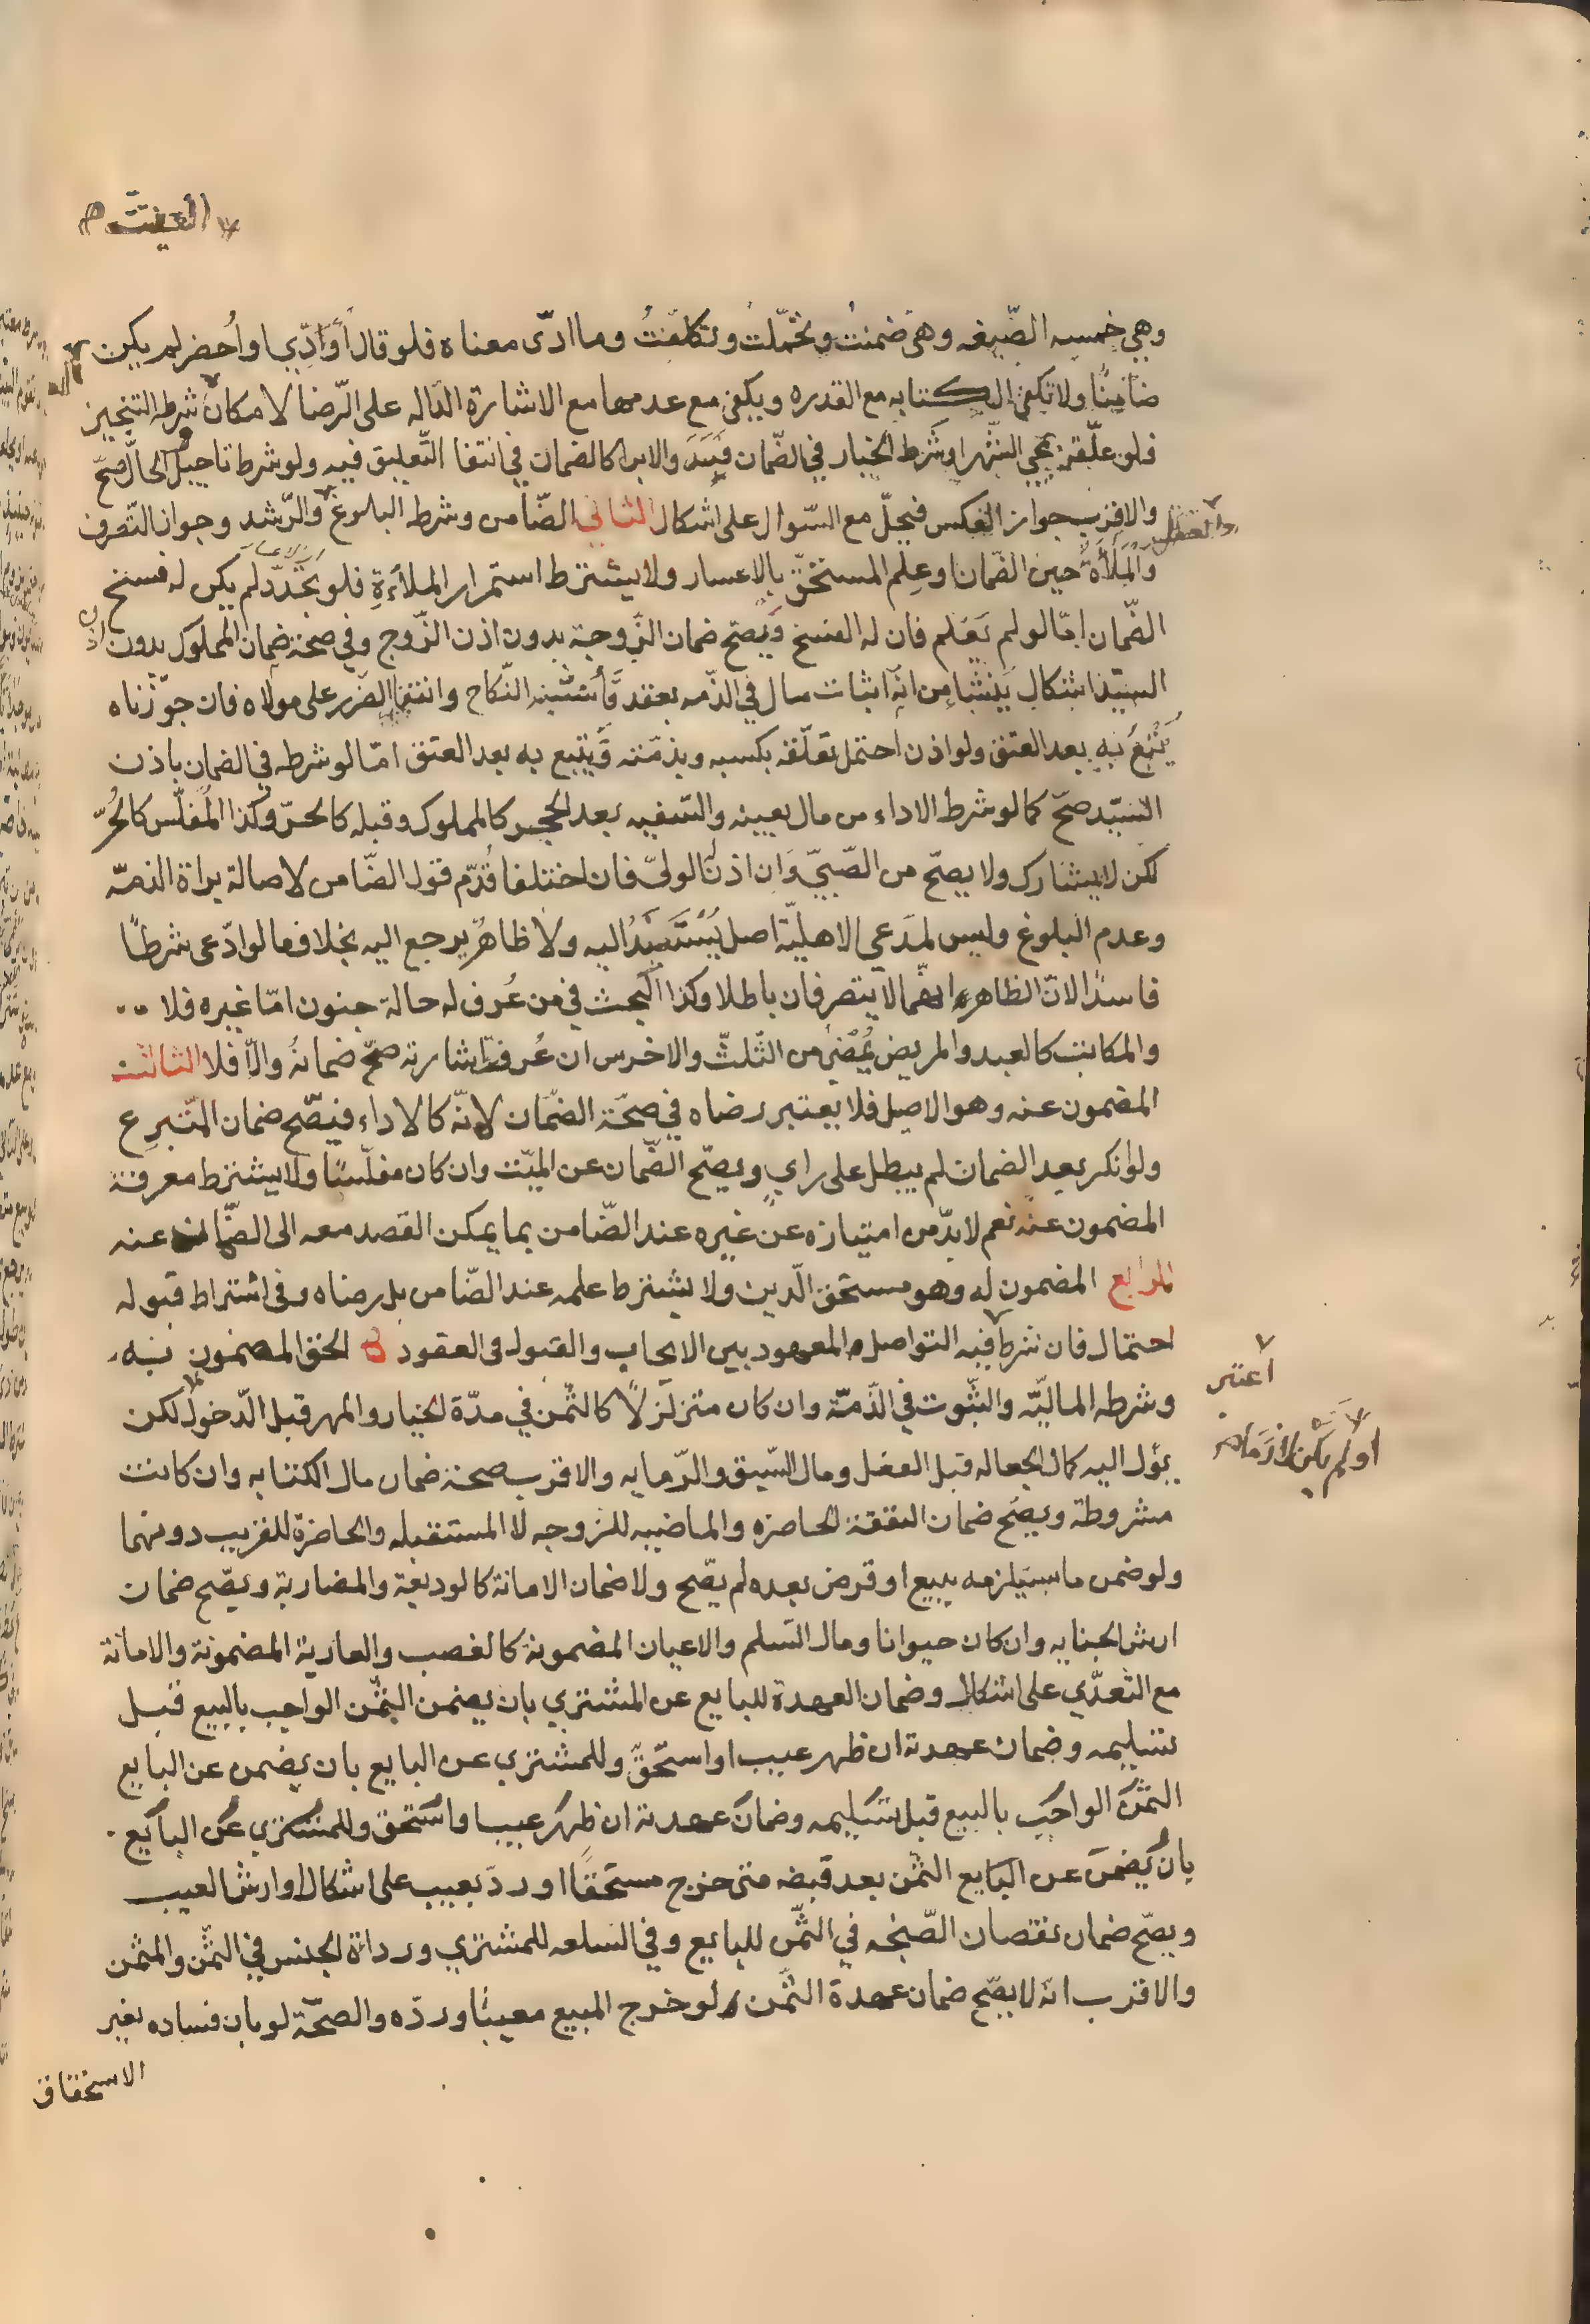 وهي خمسه الصّيغه وهي ضمنتُ وتحمّلت وتكلفتُ وما ادّى معناه فلو قال أؤدّي او أحضر لم يكن
ضامنًا ولا تكفي الكتابه مع القدره ويكفي مع عدمها مع الاشارة الدّاله على الرّضا لا مكان شرطه التنجيز
فلو علّقه بمجي الشّهر او شرط الخيار في الضّمان فسد والابرا كالضمان في انتفا التّعليق فيه ولو شرط تاجيل الحالّ صحّ
والاقرب جواز العكس فيحلّ مع السّوال على اشكال الثاني الضّامن وشرط البلوغ والرّشد وجواز التّصرف
والعقل
والملأة حين الضّمان او علم المستحقّ بالاعسار ولا يشترط استمرار الملأة فلو تجدّد لم يكن له فسخ
الاعسار
الضّمان امّا لو لم يعلم فان له الفسخ ويصحّ ضمان الزّوجة بدون اذن الزّوج وفي صحة ضمان المملوك بدون اذن
السيّد اشكال ينشا من انّه اثبات مال في الذّمه بعقد فأشبه النّكاح وانتفا الضرر على مولاه فان جوّزناه
يُتبع به بعد العتق ولو اذن احتمل تعلّقه بكسبه وبذمّته ويتبع به بعد العتق امّا لو شرطه في الضمان باذن
السّيّد صحّ كما لو شرط الاداء من مال بعينه والسّفيه بعد الحجر كالمملوك وقبله كالحرّ وكذا المُفلّس كالحُرّ
لكن لا يشارك ولا يصحّ من الصّبيّ وان اذن الوليّ فان اختلفا قُدّم قول الضّامن لاصالة براة الذمّة
وعدم البلوغ وليس لمدعي الاهليّة اصل يُستَند اليه ولا ظاهر يرجع اليه بخلاف ما لو ادّعى شرطًا
فاسدًا لانّ الظاهر انهما لا يتصرفان باطلا وكذا البحث في من عُرف له حالة جنون امّا غيره فلا
والمكاتب كالعبد والمريض يُمضى من الثّلث والاخرس ان عُرفت اشارته صحّ ضمانُه والّا فلا الثالث
المضمون عنه وهو الاصيل فلا يعتبر رضاه في صحّة الضّمان لانّه كالاداء فيصّح ضمان المتّبرع
ولو انكر بعد الضمان لم يبطل على راي ويصحّ الضّمان عن الميّت وان كان مفلّسًا ولا يشترط معرفة
المضمون عنه نعم لا بدّ من امتيازه عن غيره عند الضّامن بما يمكن القصد معه الى الضّمان عنه
الرابع المضمون له وهو مستحق الدّين ولا يشترط علمه عند الضّامن بل رضاه وفي اشتراط قبوله
احتمال فان شرط فيه التواصل المعهود بين الايجاب والقبول في العقود الحق المضمون به
اعتبر
وشرطه الماليّه والثّبوت في الذّمّة وان كان متزلزلًا كالثّمن في مدّة الخيار والمهر قبل الدّخول لكن
او لم يكن لازما
يؤل اليه كمال الجعاله قبل الفعل ومال السّبق والرّمايه والاقرب صحة ضمان مال الكتابه وان كانت
مشروطة ويصّح ضمان النفقة الحاضره والماضيه للزوجه لا المستقبله والحاضرة للقريب دونهما
ولو ضمن ما سيلزمه ببيع او قرض بعده لم يصّح ولا ضمان الامانة كالوديعة والمضاربة ويصّح ضمان
ارش الجنايه وان كان حيوانا ومال السّلم والاعيان المضمونة كالغصب والعارية المضمونة والامانة
مع التّعدّي على اشكال وضمان العهدة للبايع عن المشتري بان يضمن الثّمن الواجب بالبيع قبل
تسليمه وضمان عهدته ان ظهر عيب او استحقّ وللمشتري عن البايع بان يضمن عن البايع
الثمن الواجب بالبيع قبل تسليمه وضمان عهدته ان ظهر عيب او استحق وللمشتري عن البايع
بان يضمن عن البايع الثّمن بعد قبضه متى خرج مستحقًا او ردّ بعيب على اشكال او ارش العيب
ويصّح ضمان نقصان الصّنجه في الثّمن للبايع وفي السلعه للمشتري ورداة الجنس في الثّمن والمثمن
والاقرب انّه لا يصّح ضمان عهدة الثّمن لو خرج المبيع معيبًا وردّه والصحّة لو بان فساده بغير
الاستحقاق